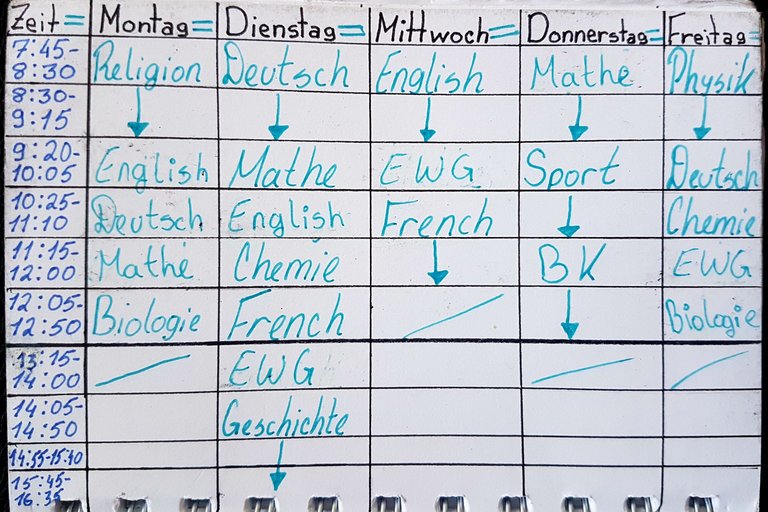 Zeit= Montag= Dienstag= Mittwoch= Donnerstag= Freitag=
7:45-8:30 Religion Deutsch English Mathe Physik
8:30-9:15 ↓ ↓ ↓ ↓ ↓
9:20-10:05 English Mathe EWG Sport Deutsch
10:25-11:10 Deutsch English French ↓ Chemie
11:15-12:00 Mathe Chemie ↓ BK EWG
12:05-12:50 Biologie French ↓ Biologie
13:15-14:00 EWG
14:05-14:50 Geschichte
14:55-15:40 ↓
15:45-16:35